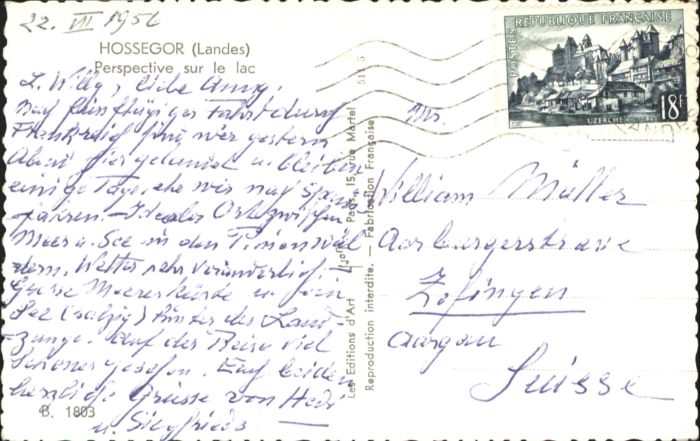 22. VII 1956
HOSSEGOR (Landes)
Perspective sur le lac
L. Willy, liebe Anny,
Nach fünftägiger Fahrt durch
Frankreich sind wir gestern
Abend hier gelandet u. bleiben
einige Tage, ehe wir nach Spanien
fahren. Idealer Ort zwischen
Meer u. See in den Pinienwäl
dern. Wetter sehr veränderlich.
Grosse Meeresküste u. ein
See (salzig) hinter der Land
-zunge. Auf der Reise viel
Schönes gesehen. Euch beiden
herzliche Grüsse von Hedi
u. Siegfried.
B. 1803
Les Editions d'Art Paris, 15, rue Martel
Reproduction interdite. — Fabrication Française
POSTES
RÉPUBLIQUE FRANÇAISE
18F
UZERCHE
Mr.
William Müller
Aarburgerstrasse
Zofingen
Aargau
Suisse